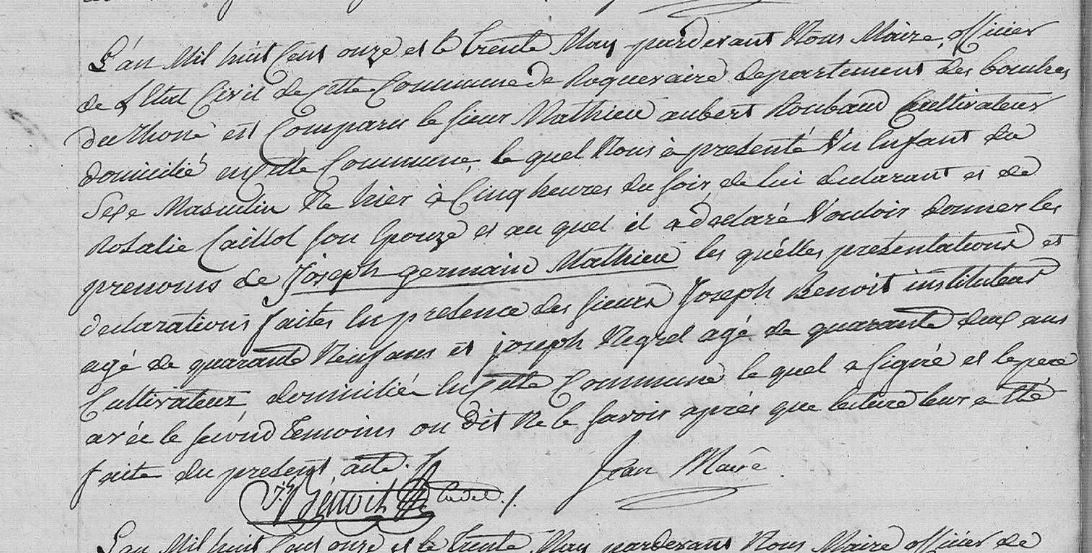 L'an Mil huit Cent onze et le trente May pardevant Nous Maire, officier
de L'Etat Civil de cette Commune de Roquevaire departement des bouches
du Rhone est Comparu le sieur Mathieu aubert Roubaud Cultivateur
domicilié en cette Commune, le quel Nous a presenté Un Enfant du
Sexe Masculin Né hier à Cinq heures du soir de lui declarant et de
Rosalie Caillol son Epouze et au quel il a declaré Vouloir donner les
prenoms de Joseph germain Mathieu les quelles presentations et
declarations faites En presence des sieurs Joseph Benoit instituteur
agé de quarante Neuf ans et joseph Negrel agé de quarante deux ans
Cultivateur domicilié En cette Commune le quel a signé et le pere
avec le second temoins on dit Ne le savoir aprés que lecture leur a eté
faite du present acte ./.
Jean Maire
Js Benoit
L'an Mil huit Cent onze et le trente May pardevant Nous Maire officier de